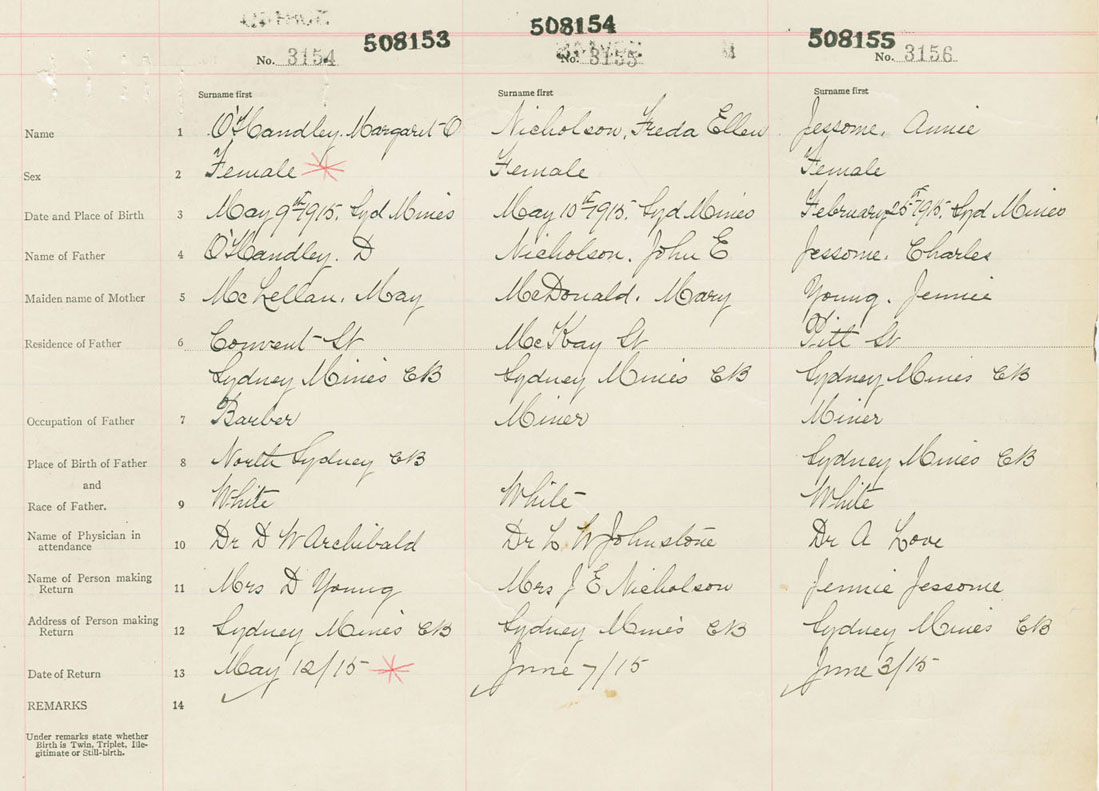 508153 508154 508155
No. 3154 No. 3155 No. 3156
Surname first Surname first Surname first
Name 1 O'Handley, Margaret O Nicholson, Freda Ellen Jessome, Annie
Sex 2 Female Female Female
Date and Place of Birth 3 May 9th 1915, Syd Mines May 10th 1915, Syd Mines February 25th 1915, Syd Mines
Name of Father 4 O'Handley, D Nicholson, John E Jessome, Charles
Maiden name of Mother 5 McLellan, May McDonald, Mary Young, Jennie
Residence of Father 6 Convent St McKay St Pitt St
Sydney Mines CB Sydney Mines CB Sydney Mines CB
Occupation of Father 7 Barber Miner Miner
Place of Birth of Father 8 North Sydney CB Sydney Mines CB
and
Race of Father. 9 White White White
Name of Physician in
attendance 10 Dr D W Archibald Dr L W Johnstone Dr A Love
Name of Person making
Return 11 Mrs D Young Mrs J E Nicholson Jennie Jessome
Address of Person making
Return 12 Sydney Mines CB Sydney Mines CB Sydney Mines CB
Date of Return 13 May 12/15 June 7/15 June 3/15
REMARKS 14
Under remarks state whether
Birth is Twin, Triplet, Ille-
gitimate or Still-birth.